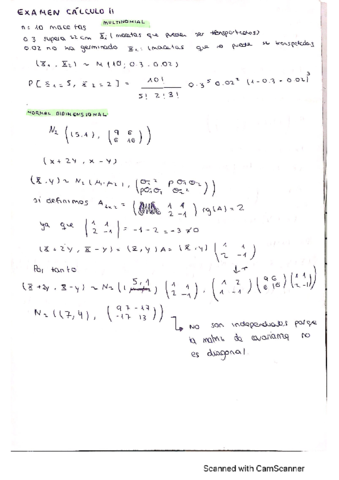 EXAMEN CÁLCULO II
MULTINOMIAL
n = 10 macetas
0.3 supera 12 cm X₁ (macetas que pueden ser transportadas)
0.02 no ha germinado X₂ (macetas que no puede transportadas)
(X₁, X₂) ~ M (10; 0.3, 0.02)
P[X₁=5, X₂=2] = 10! / 5! 2! 3! 0.3⁵ 0.02² (1-0.3-0.02)³
NORMAL BIDIMENSIONAL
N₂ ((5,1), (9 6 / 6 10))
(x+2y, x-y)
(X,Y) ~ N₂ (μ₁, μ₂), (σ₁² ρσ₁σ₂ / ρσ₁σ₂ σ₂²)
si definimos A₂ₓ₂ = (1 1 / 2 -1) rg(A) = 2
ya que |1 1 / 2 -1| = -1-2 = -3 ≠ 0
(X+2Y, X-Y) = (X,Y) A = (X,Y) (1 1 / 2 -1)
Por tanto
(X+2Y, X-Y) ~ N₂ ((5,1) (1 1 / 2 -1), (1 2 / 1 -1) (9 6 / 6 10) (1 1 / 2 -1))
N₂ ((7,4), (97 -17 / -17 13))
No son independientes porque
la matriz de covarianzas no
es diagonal
Scanned with CamScanner